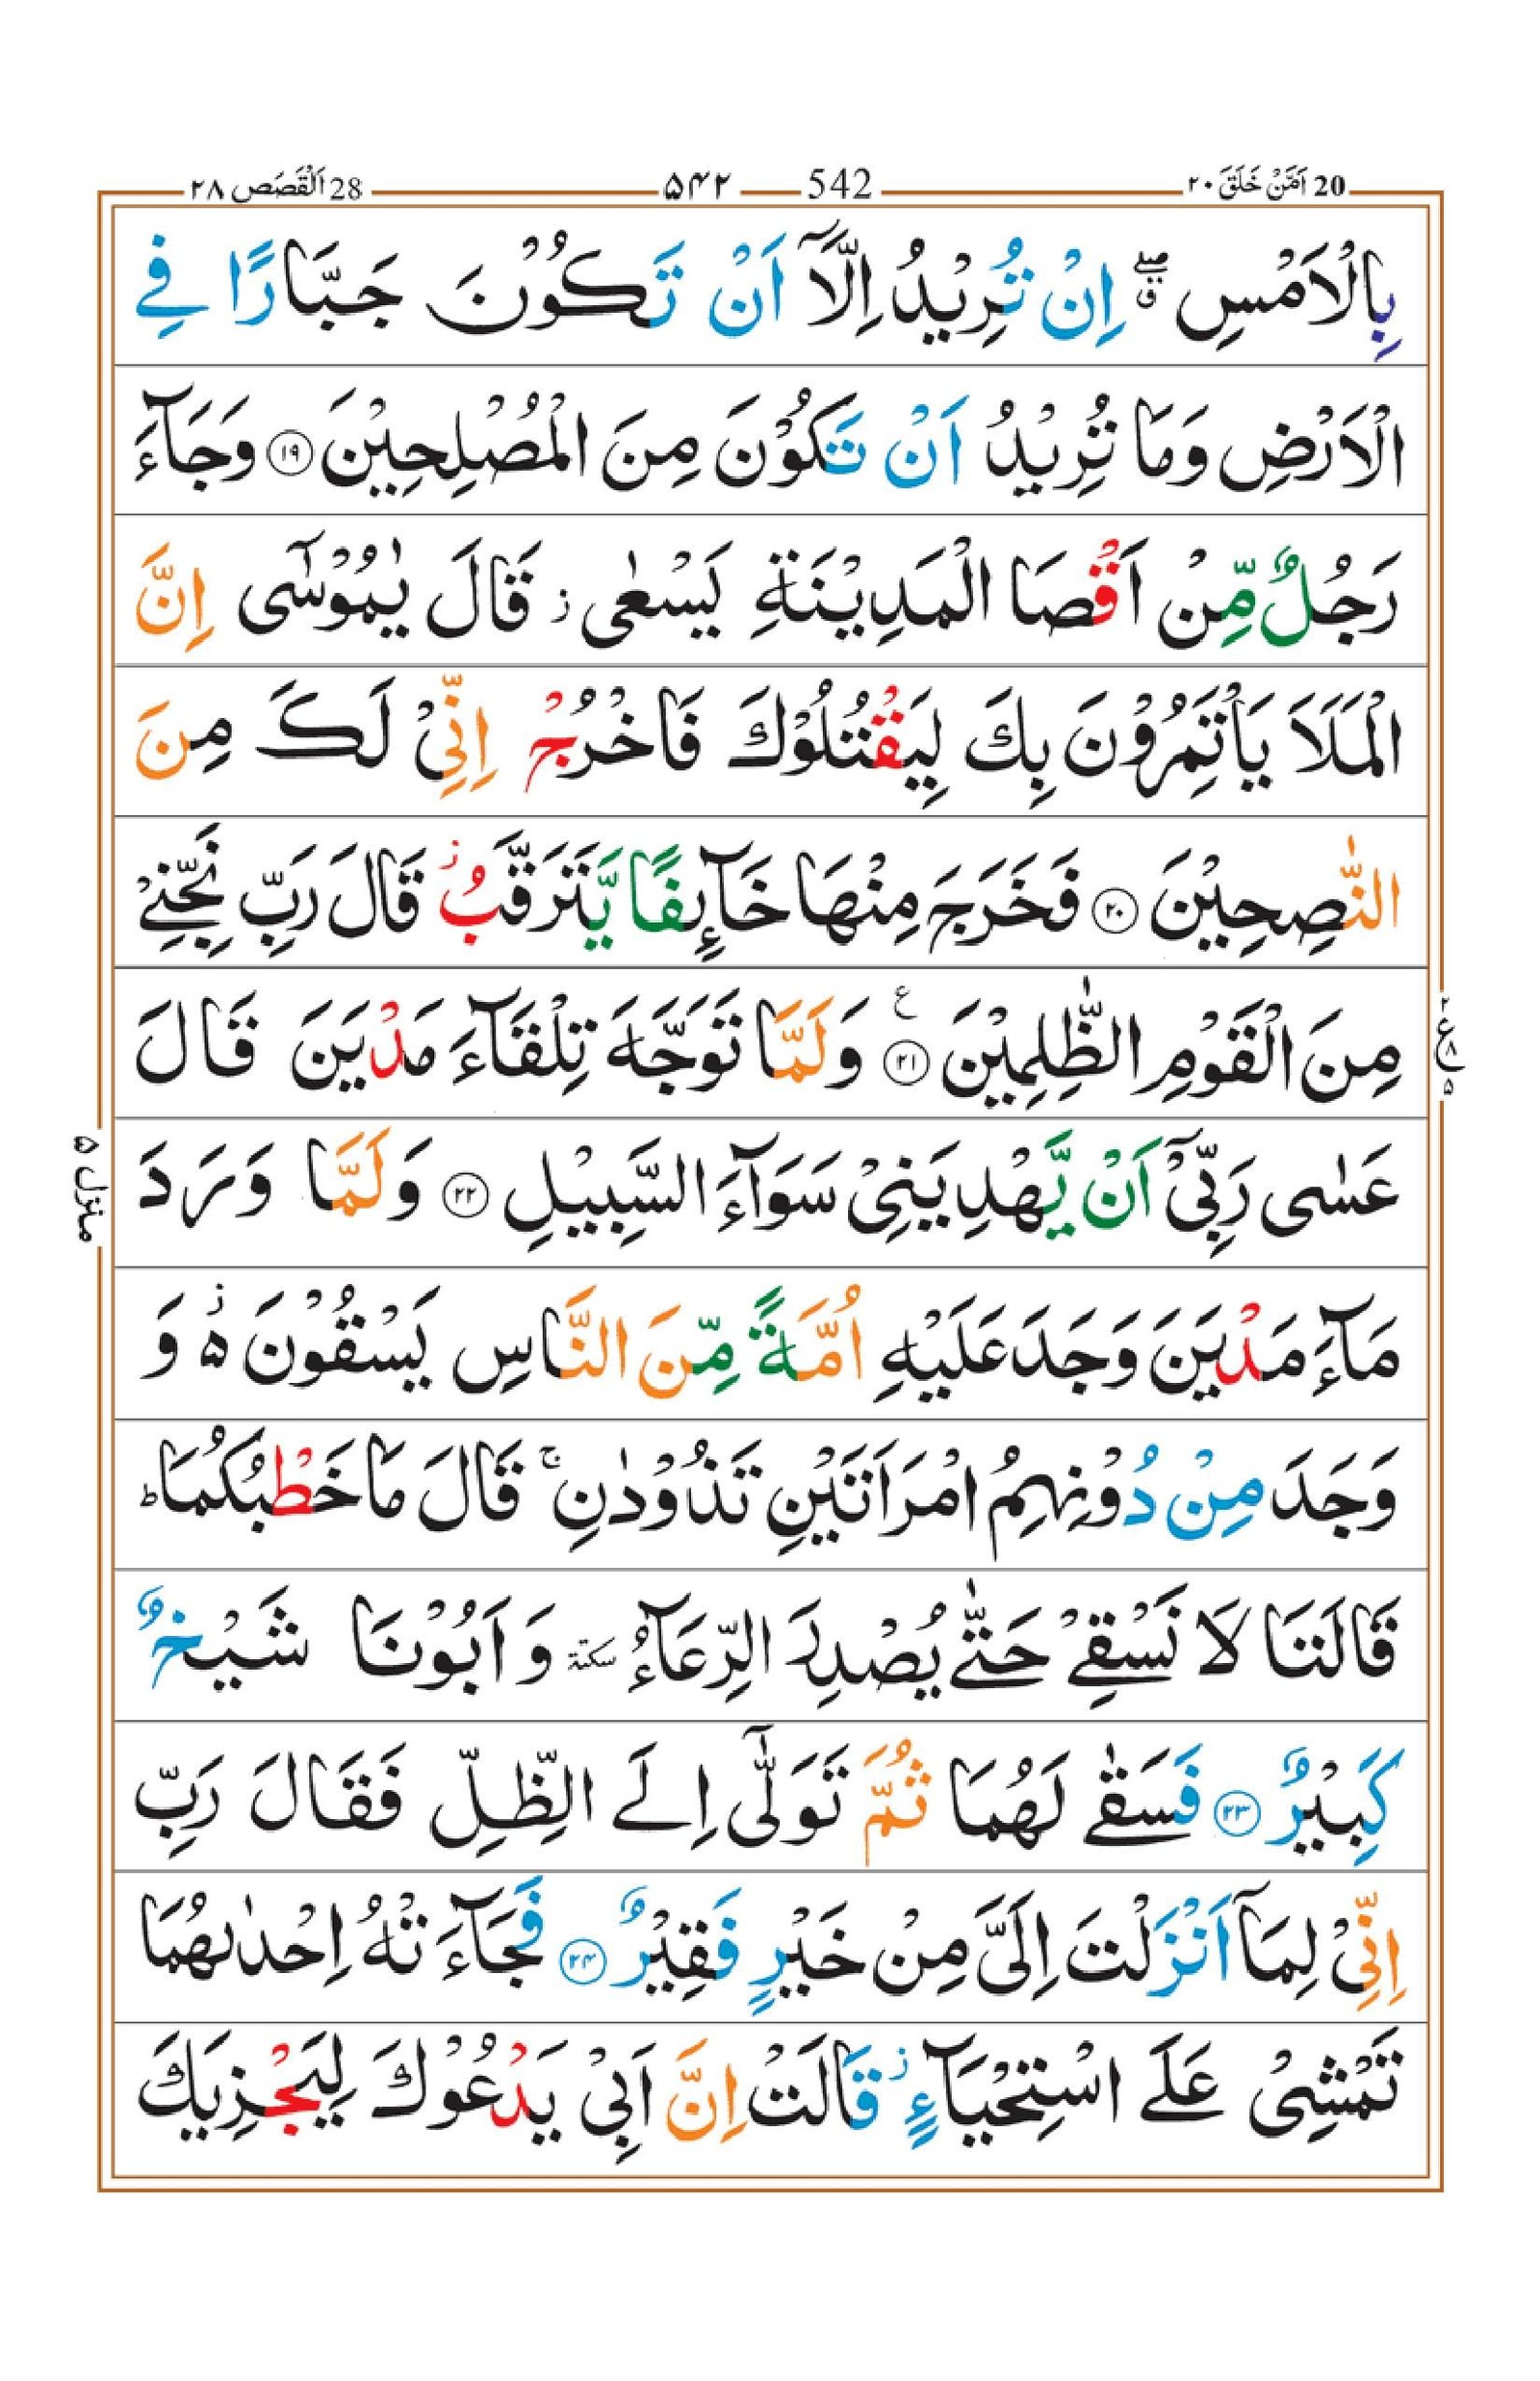 20 اَمَّنْ خَلَقَ ٢٠ 542 ۵۴۲ 28 اَلْقَصَص ٢٨
بِالْاَمْسِ ۖۗ اِنْ تُرِيْدُ اِلَّاۤ اَنْ تَكُوْنَ جَبَّارًا فِے
الْاَرْضِ وَمَا تُرِيْدُ اَنْ تَكُوْنَ مِنَ الْمُصْلِحِيْنَ ۝۱۹ وَجَآءَ
رَجُلٌ مِّنْ اَقْصَا الْمَدِيْنَةِ يَسْعٰى ؗ قَالَ يٰمُوْسٰٓى اِنَّ
الْمَلَاَ يَاْتَمِرُوْنَ بِكَ لِيَقْتُلُوْكَ فَاخْرُجْ اِنِّىْ لَكَ مِنَ
النّٰصِحِيْنَ ۝۲۰ فَخَرَجَ مِنْهَا خَآئِفًا يَّتَرَقَّبُ ؗ قَالَ رَبِّ نَجِّنِےْ
مِنَ الْقَوْمِ الظّٰلِمِيْنَ ۝۲۱ ع وَلَمَّا تَوَجَّهَ تِلْقَآءَ مَدْيَنَ قَالَ
عَسٰى رَبِّىْٓ اَنْ يَّهْدِيَنِىْ سَوَآءَ السَّبِيْلِ ۝۲۲ وَلَمَّا وَرَدَ
مَآءَ مَدْيَنَ وَجَدَ عَلَيْهِ اُمَّةً مِّنَ النَّاسِ يَسْقُوْنَ ۵ؗ وَ
وَجَدَ مِنْ دُوْنِهِمُ امْرَاَتَيْنِ تَذُوْدٰنِ ۚ قَالَ مَا خَطْبُكُمَا ؕ
قَالَتَا لَا نَسْقِےْ حَتّٰے يُصْدِرَ الرِّعَآءُ سكتة وَاَبُوْنَا شَيْخٌ
كَبِيْرٌ ۝۲۳ فَسَقٰے لَهُمَا ثُمَّ تَوَلّٰٓى اِلَے الظِّلِّ فَقَالَ رَبِّ
اِنِّىْ لِمَاۤ اَنْزَلْتَ اِلَىَّ مِنْ خَيْرٍ فَقِيْرٌ ۝۲۴ فَجَآءَتْهُ اِحْدٰىهُمَا
تَمْشِىْ عَلَے اسْتِحْيَآءٍ ؗ قَالَتْ اِنَّ اَبِىْ يَدْعُوْكَ لِيَجْزِيَكَ
٢ ع ٨ ۵
منزل ۵